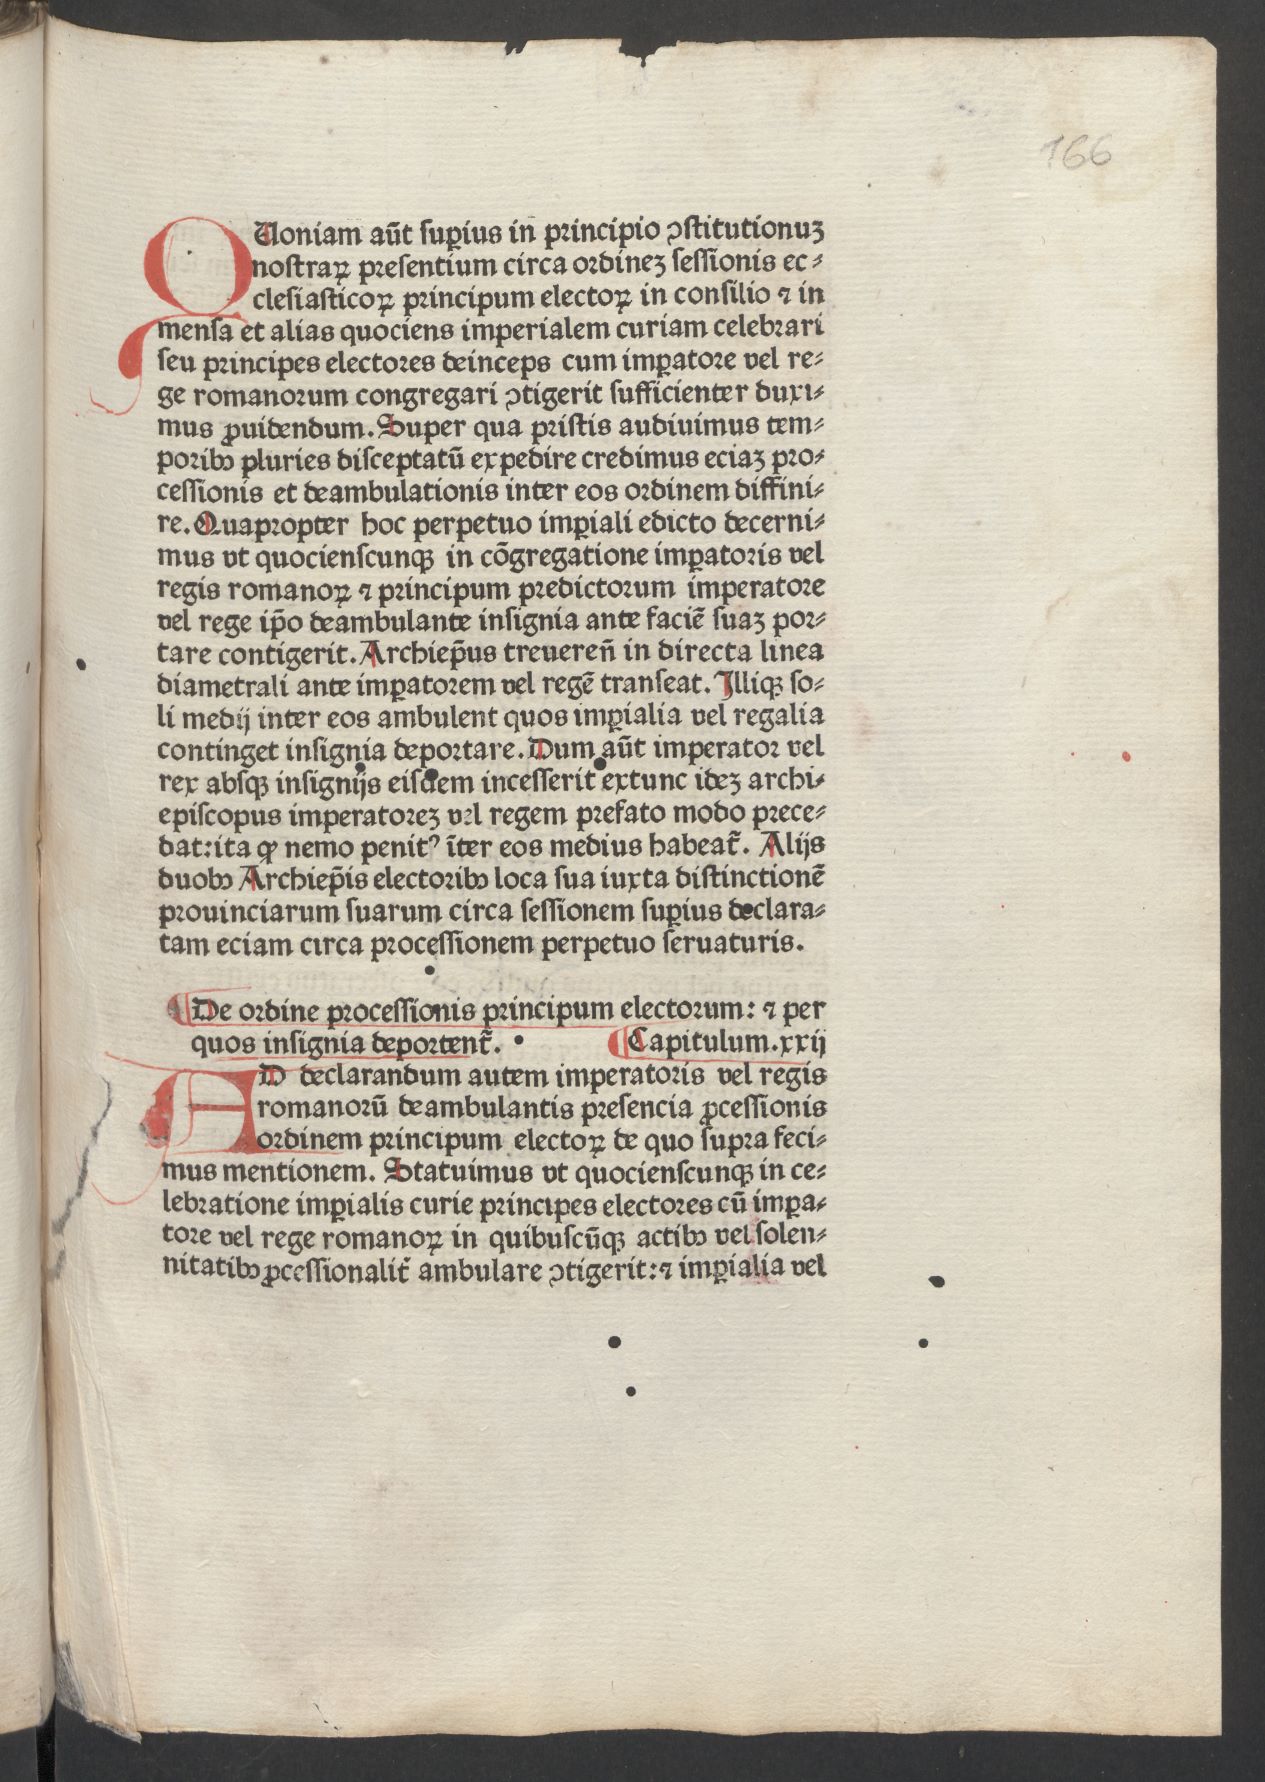 166
QUoniam aūt supius in principio ↄstitutionuꝫ
nostraꝝ presentium circa ordineꝫ sessionis ec⸗
clesiasticoꝝ principum electoꝝ in consilio ⁊ in
mensa et alias quociens imperialem curiam celebrari
seu principes electores deinceps cum impatore vel re⸗
ge romanorum congregari ↄtigerit sufficienter duxi⸗
mus ꝓuidendum. Super qua pristis audiuimus tem⸗
poribꝰ pluries disceptatū expedire credimus eciaꝫ pro⸗
cessionis et deambulationis inter eos ordinem diffini⸗
re. Quapropter hoc perpetuo imꝑiali edicto decerni⸗
mus vt quocienscunqꝫ in cōgregatione imꝑatoris vel
regis romanoꝝ ⁊ principum predictorum imperatore
vel rege ip̄o deambulante insignia ante faciē suaꝫ por⸗
tare contigerit. Archiep̄us treuereñ in directa linea
diametrali ante imꝑatorem vel regē transeat. Illiqꝫ so⸗
li medij inter eos ambulent quos imꝑialia vel regalia
continget insignia deportare. Dum aūt imperator vel
rex absqꝫ insignijs eisdem incesserit extunc ideꝫ archi⸗
episcopus imperatoreꝫ vel regem prefato modo prece⸗
dat: ita ꝙ nemo penitꝰ īter eos medius habeat̄. Alijs
duobꝰ Archiep̄is electoribꝰ loca sua iuxta distinctionē
prouinciarum suarum circa sessionem supius declara⸗
tam eciam circa processionem perpetuo seruaturis.
De ordine processionis principum electorum: ⁊ per
quos insignia deportent̄. Capitulum. xxij
AD declarandum autem imperatoris vel regis
romanorū deambulantis presencia ꝓcessionis
ordinem principum electoꝝ de quo supra feci⸗
mus mentionem. Statuimus vt quocienscunqꝫ in ce⸗
lebratione imꝑialis curie principes electores cū impa⸗
tore vel rege romanoꝝ in quibuscūqꝫ actibꝰ vel solen⸗
nitatibꝰ ꝓcessionalit̄ ambulare ↄtigerit: ⁊ imꝑialia vel